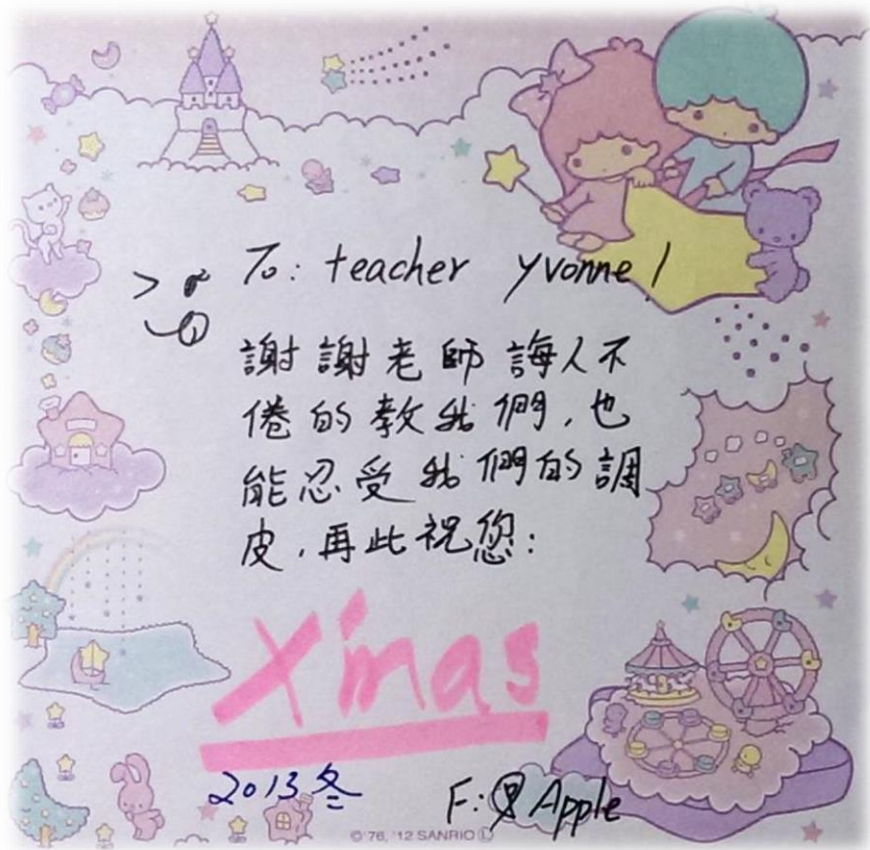 To: teacher yvonne!
謝謝老師誨人不
倦的教我們,也
能忍受我們的調
皮,再此祝您:
X'mas
2013冬
F: Apple
© '76, '12 SANRIO Ⓛ